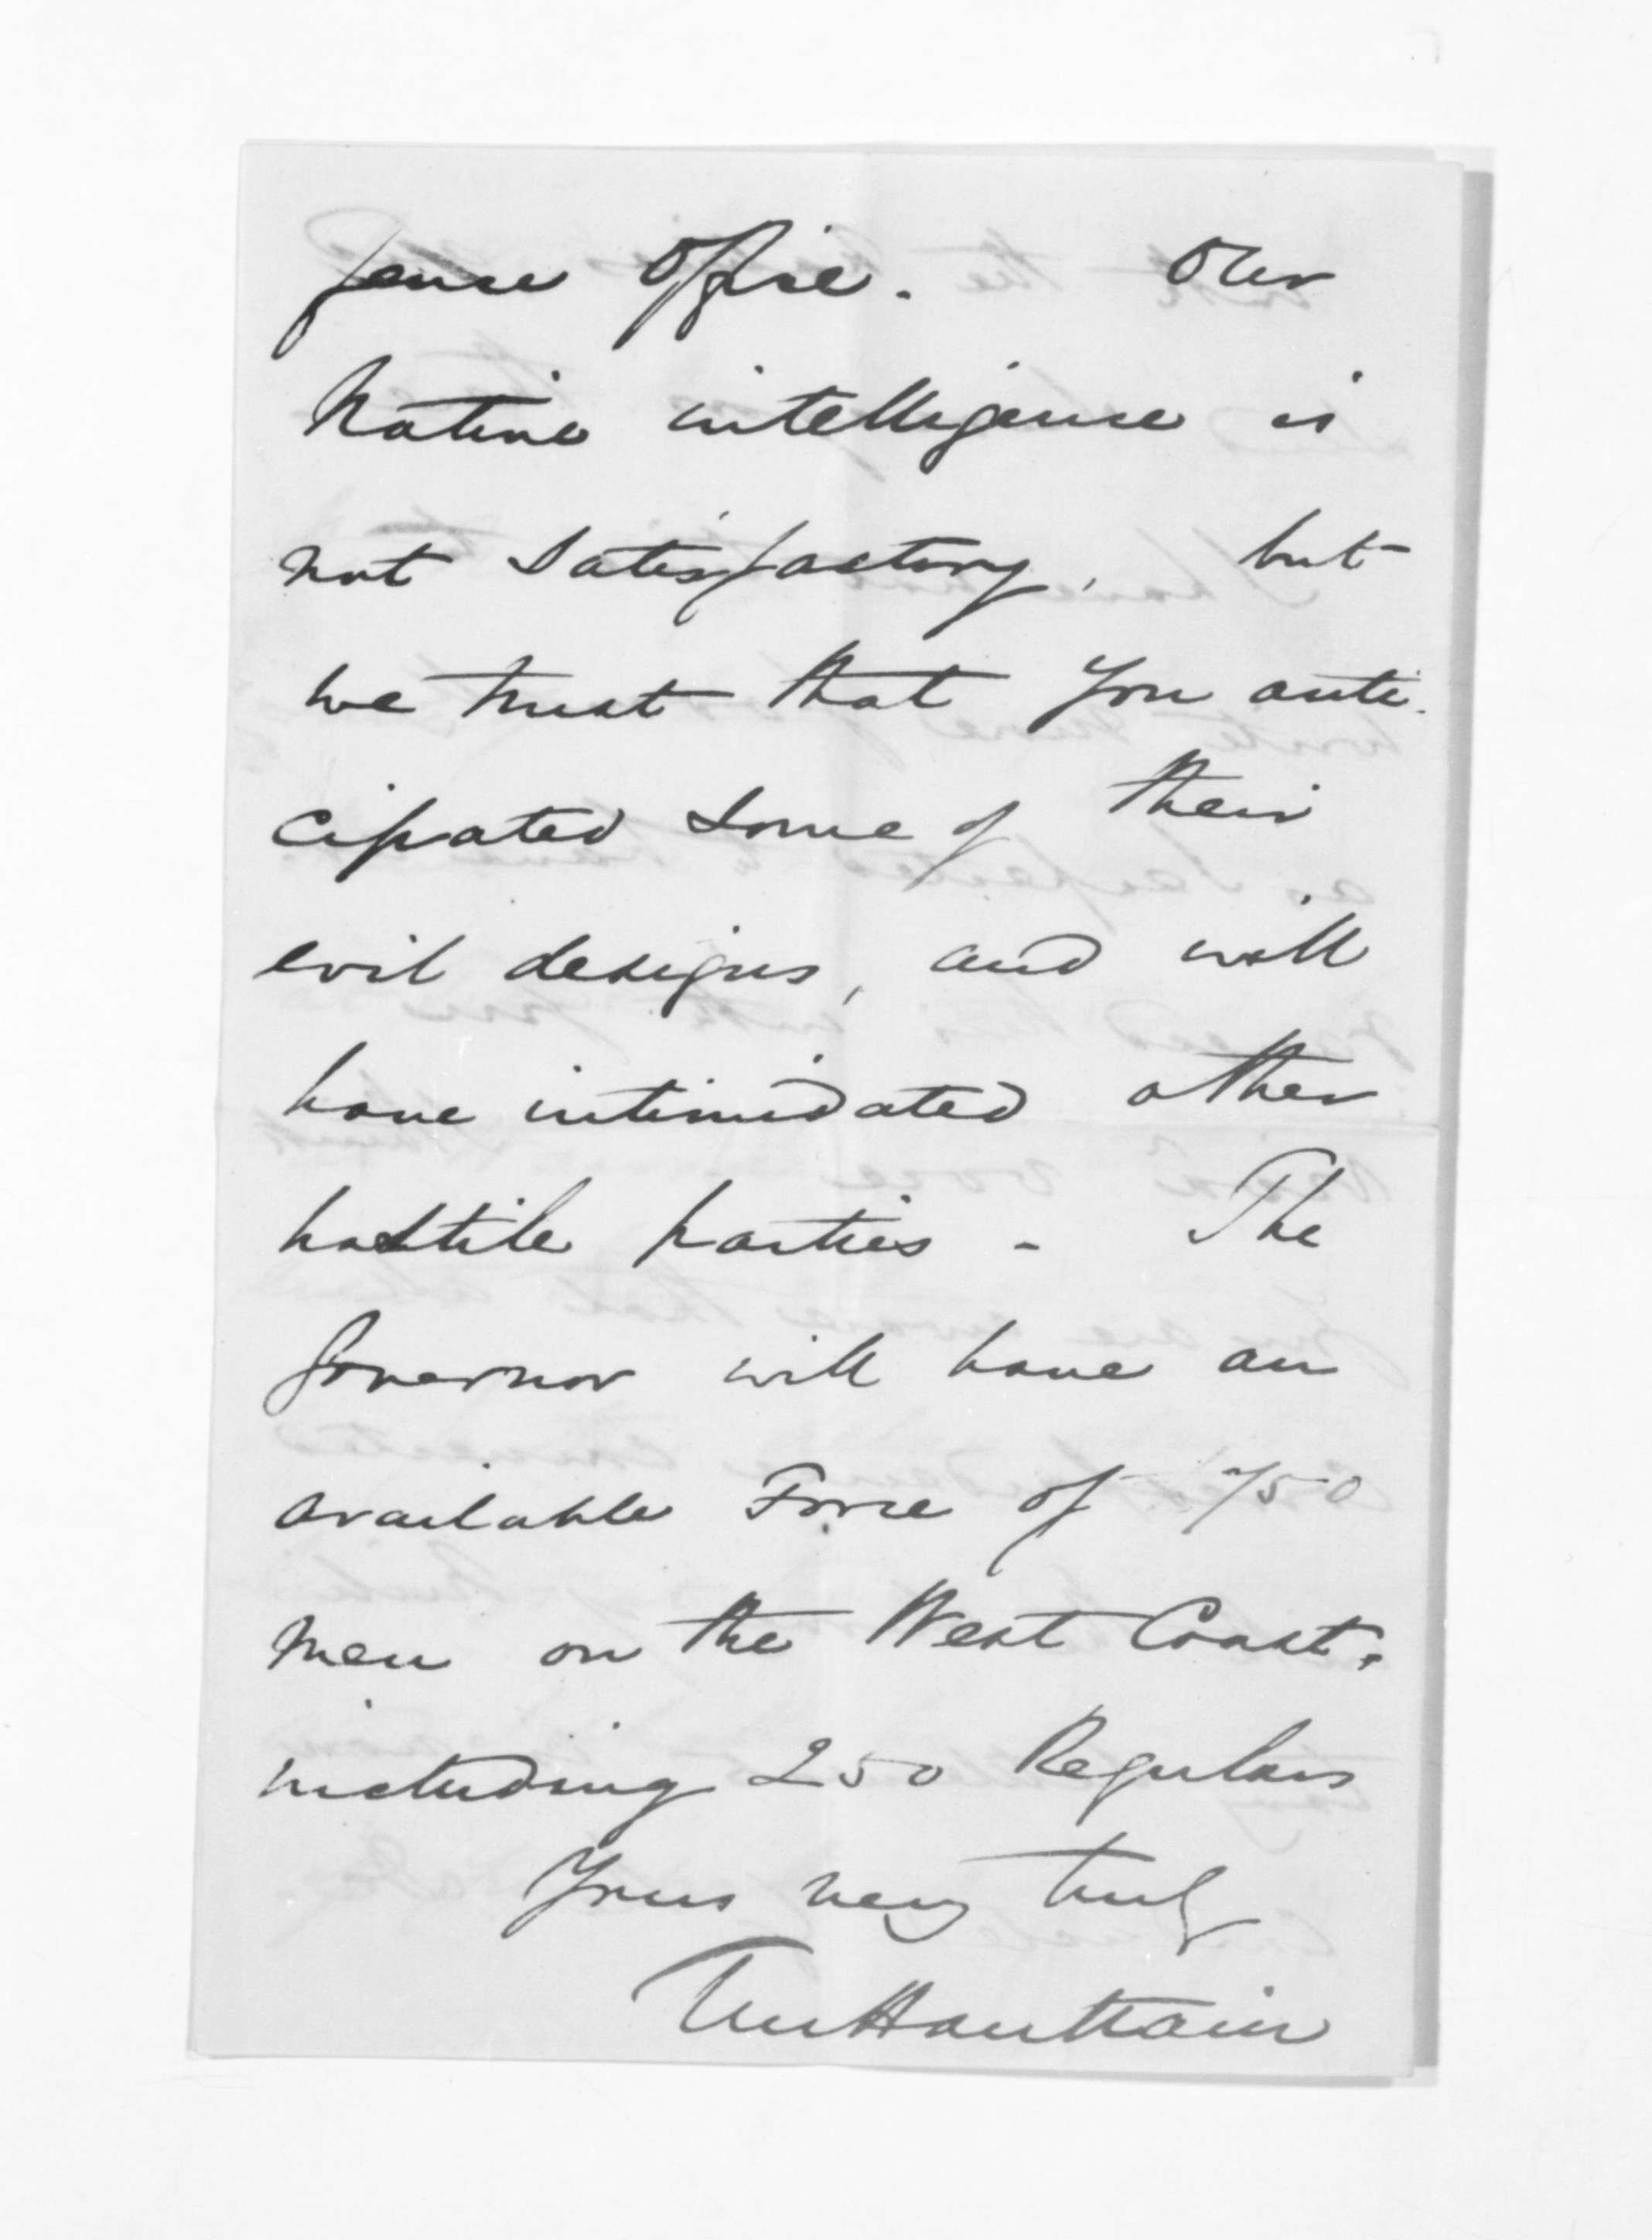 fence Office. Our
Native intelligence is
not satisfactory, but
we trust that you anti
cipated some of their
evil designs, and will
have intimidated other
hostile parties - The
Governor will have an
available Force of 750
men on the West Coast.
including 250 Regulars
Yours very truly
TM Haultain